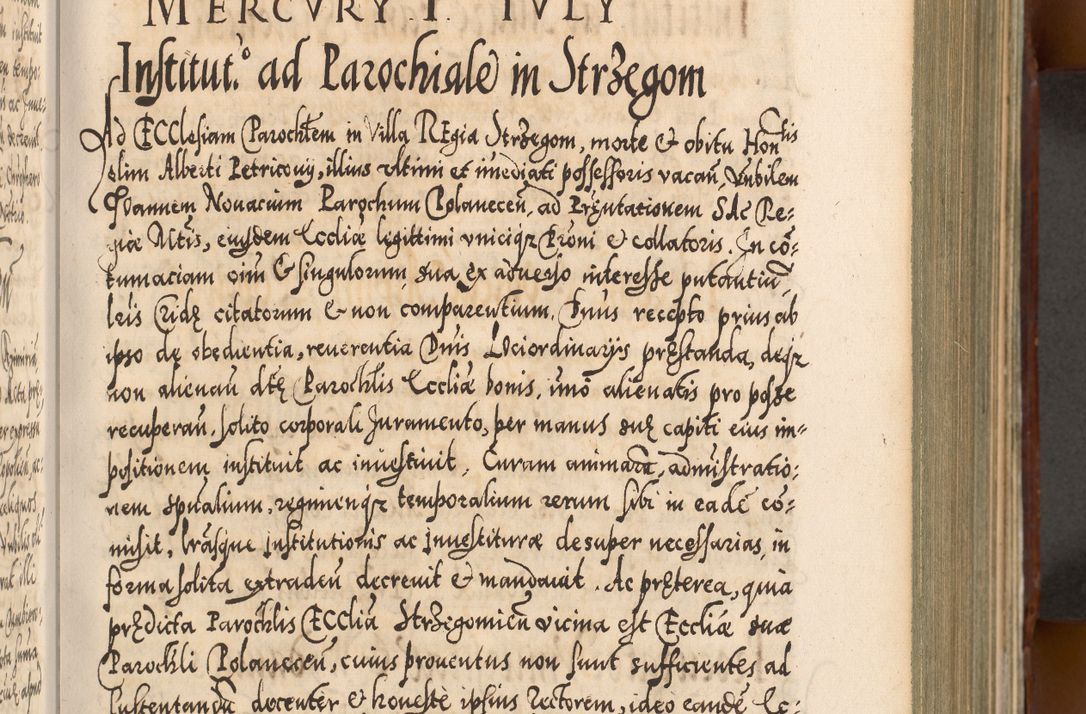 MERCVRY I. IVLY
Institut.º ad Parochiale in Strzegom
Ad ECClesiam Parochlem in Villa REgia Strzegom, morte & obitu Hon
olim Alberti Petricouij, illius vltimi et imediati possessoris vacan, Vnbilem
IOannem Nouacium Parochum Polanecen, ad Prntationem SAc Re-
giæ Mttis, eiusdem Eccliæ legittimi vniciqz Proni & collatoris. In cō-
tumaciam oīm & singulorum, sua ex aduerso interesse putantiū
lris Cridę citatorum & non comparentium. Dnus recepto prius ab
ipso de obedientia, reuerentia Dnis LOciordinarijs pręstanda, deqz
non alienan dtę Parochlis Eccliæ bonis, imo alienatis pro posse
recuperan, solito corporali Juramento, per manus suę capiti eius im-
positionem instituit ac inuestiuit. Curam animarū, admistratio-
nem spūalium, regimenqz temporalium rerum sibi in eadē cō-
misit, lrasque Institutionis ac Inuestituræ desuper necessarias in
forma solita extraden decreuit & mandauit. Ac pręterea, quia
prędicta Parochlis ECCliā Strzegomien vicina est Eccliæ suæ
Parochli Polanecen, cuius prouentus non sunt sufficientes ad
sustentandū docenter & honestè ipsius Rectorem, ideo eandē Ec-